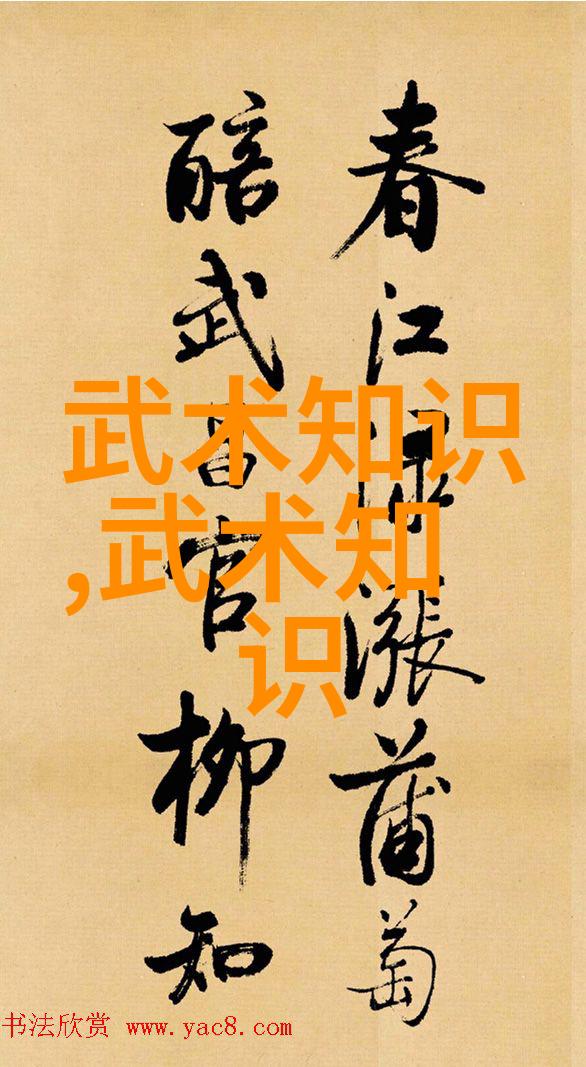 春江渌漲蒲萄
醅武昌官柳知
武术知识
,武术知
识
书法欣赏 www.yac8.com